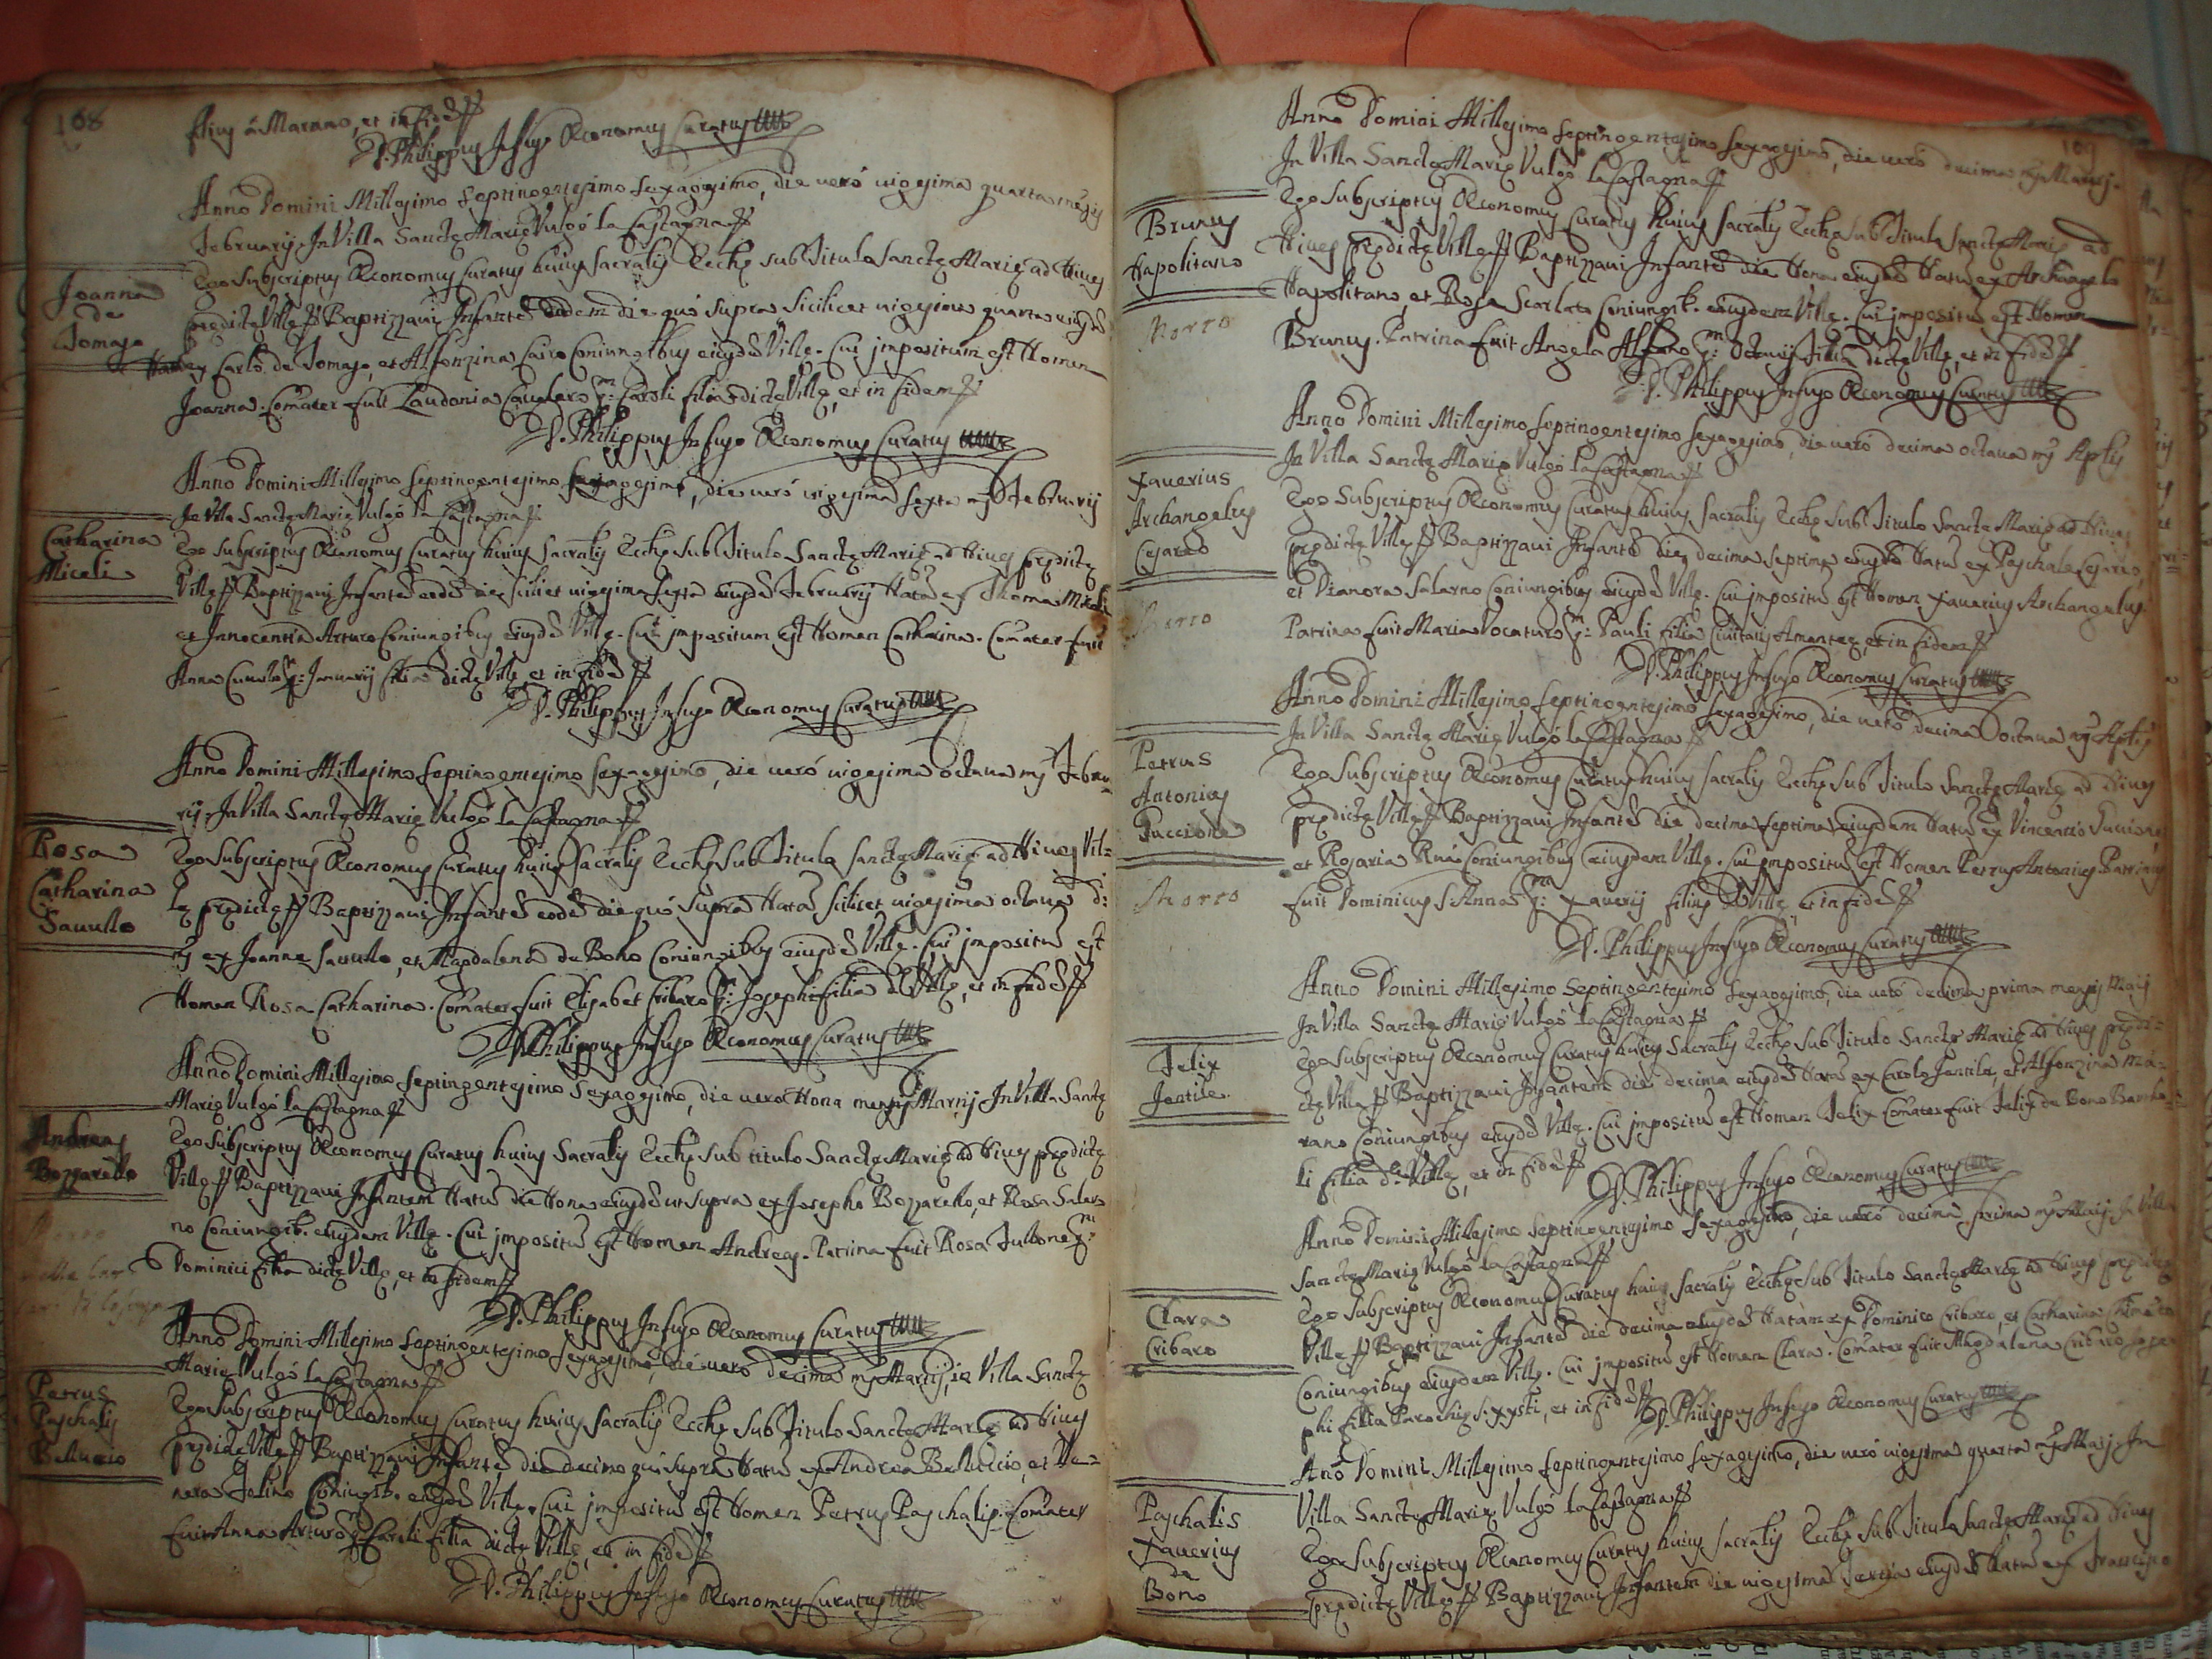 108
filius à Marano, et in fidem
D. Philippus Infuso Œconomus Curatus
Anno Domini Millesimo Septingentesimo sexagesimo, die verò vigesima quarta mensis
Februarij. In Villa Sanctę Marię Vulgò la Castagna
Joanna
de
Tomaso
Ego subscriptus Œconomus Curatus huius sacralis Ecclę sub Titulo Sanctę Marię ad Nives
prędictę Villę Baptizzavi Infantẽ eodem die quò supra scilicet vigesima quarta eiusdẽ
ex Carlo de Tomaso, et Alfonzina Coniungibus eiusdẽ Villę. Cui impositum est Nomen
Joanna. Comater fuit Laudonia q: Caroli filia dictę Villę, et in fidem
D. Philippus Infuso Œconomus Curatus
Anno Domini Millesimo Septingentesimo sexagesimo, die verò vigesima sexta mẽs Februarij
In Villa Sanctę Marię Vulgò la Castagna
Catharina
Miceli
Ego subscriptus Œconomus Curatus huius sacralis Ecclę sub Titulo Sanctę Marię ad Nives prędictę
Villę Baptizzavi Infantẽ eodẽ die scilicet vigesima sexta eiusdẽ Februarij Natã ex Thoma Miceli
et Innocentia Arturo Coniungibus eiusdẽ Villę. Cui impositum est Nomen Catharina. Comater fuit
Anna q: Januarij filia dictę Villę, et in fidẽ
D. Philippus Infuso Œconomus Curatus
Anno Domini Millesimo Septingentesimo sexagesimo, die verò vigesima octava mẽs Februa
rij. In Villa Sanctę Marię Vulgò la Castagna
Rosa
Catharina
Sauullo
Ego subscriptus Œconomus Curatus huius sacralis Ecclę sub Titulo sanctę Marię ad Nives Vil=
lę prędictę Baptizzavi Infantẽ eodẽ die quò supra Natã scilicet vigesima octava
ex Joanne Sauullo, et Magdalena de Bono Coniungibus eiusdẽ Villę. Cui impositũ est
Nomen Rosa Catharina. Comater fuit Elisabet Cribaro q: Josephi filia dę Villę, et in fidẽ
D. Philippus Infuso Œconomus Curatus
Anno Domini Millesimo Septingentesimo Sexagesimo, die verò Nona mensis Martij In Villa Sanctę
Marię Vulgò la Castagna
Andreas
Bozzarello
Ego subscriptus Œconomus Curatus huius Sacralis Ecclę sub titulo Sanctę Marię ad Nives prędictę
Villę Baptizzavi Infantem Natũ die Nona eiusdẽ ut supra ex Josepho Bozzarello, et Rosa Saler
no Coniungib. eiusdem Villę. Cui impositũ est Nomen Andreas. Patrina fuit Rosa q:
Dominici filia dictę Villę, et in fidem
D. Philippus Infuso Œconomus Curatus
Anno Domini Millesimo Septingentesimo sexagesimo, die verò decima mẽs Martij, in Villa Sanctę
Marię Vulgò la Castagna
Petrus
Paschalis
Belluccio
Ego subscriptus Œconomus Curatus huius sacralis Ecclę sub Titulo Sanctę Marię ad Nives
prędictę Villę Baptizzavi Infantẽ die decimo quò supra Natũ ex Andrea Belluccio, et Ve=
nera Felino Coniungib. eiusdẽ Villę. Cui impositũ est Nomen Petrus Paschalis. Comater
fuit Anna Arturo q: Caroli filia dictę Villę, et in fidẽ
D. Philippus Infuso Œconomus Curatus
109
Anno Domini Millesimo Septingentesimo sexagesimo, die verò decima mẽs Martij.
In Villa Sanctę Marię Vulgò la Castagna
Brunus
Napolitano
Morto
Ego subscriptus Œconomus Curatus huius sacralis Ecclę sub Titulo sanctę Marię ad
Nives prędictę Villę Baptizzavi Infantẽ die Nona eiusdẽ Natũ ex Archangelo
Napolitano, et Rosa Scarlata Coniungib. eiusdem Villę. Cui impositũ est Nomen
Brunus. Patrina fuit Angela Alfano q: Octavij filia dictę Villę, et in fidẽ
D. Philippus Infuso Œconomus Curatus
Anno Domini Millesimo Septingentesimo sexagesimo, die verò decima octava mẽs Aplis
In Villa Sanctę Marię Vulgò la Castagna
Xauerius
Archangelus
Cesareo
Morto
Ego Subscriptus Œconomus Curatus huius sacralis Ecclę sub Titulo Sanctę Marię ad Nives
prędictę Villę Baptizzavi Infantẽ die decima septima eiusdẽ Natũ ex Paschale Cesareo,
et Dianora Salarno Coniungibus eiusdẽ Villę. Cui impositũ est Nomen Xauerius Archangelus.
Patrina fuit Maria Vocaturo q: Pauli filia Civitatis Amanteę, et in fidem
D. Philippus Infuso Œconomus Curatus
Anno Domini Millesimo Septingentesimo sexagesimo, die verò decima octava mẽs Aplis
In Villa Sanctę Marię Vulgò la Castagna
Petrus
Antonius
Puccione
Morto
Ego Subscriptus Œconomus Curatus huius sacralis Ecclę sub Titulo Sanctę Marię ad Nives
prędictę Villę Baptizzavi Infantẽ die decima septima eiusdem Natũ ex Vincentio
et Rosaria Coniungibus eiusdem Villę. Cui impositũ est Nomen Petrus Antonius Patrinus
fuit Dominicus S. Anna q: Xauerij filius dę Villę et in fidẽ
D. Philippus Infuso Œconomus Curatus
Anno Domini Millesimo Septingentesimo sexagesimo, die verò decima prima mensis Maij
In Villa Sanctę Marię Vulgò la Castagna
Felix
Jentile
Ego Subscriptus Œconomus Curatus huius Sacralis Ecclę sub Titulo Sanctę Marię ad Nives prędi=
ctę Villę Baptizzavi Infantem die decima eiusdẽ Natũ ex Carolo Jentile, et Alfonzina Ma=
rano Coniungibus eiusdẽ Villę. Cui impositũ est Nomen Felix Comater fuit Felix de Bono
li filia dę Villę, et in fidẽ
D. Philippus Infuso Œconomus Curatus
Anno Domini Millesimo Septingentesimo sexagesimo, die verò decima prima mẽs Maij, In Villa
Sanctę Marię Vulgò la Castagna
Clara
Cribaro
Ego Subscriptus Œconomus Curatus huius sacralis Ecclę sub Titulo Sanctę Marię ad Nives prędictę
Villę Baptizzavi Infantẽ die decima eiusdẽ Natam ex Dominico Cribaro, et Catharina
Coniungibus eiusdem Villę. Cui impositũ est Nomen Clara. Comater fuit Magdalena Cribaro Jose
phi filia Parochię S. Xysti, et in fidẽ D. Philippus Infuso Œconomus Curatus
Anõ Domini Millesimo Septingentesimo sexagesimo, die verò vigesima quarta mẽs Maij. In
Villa Sanctę Marię Vulgò la Castagna
Paschalis
Xauerius
de
Bono
Ego Subscriptus Œconomus Curatus huius sacralis Ecclę sub Titulo Sanctę Marię ad Nives
prędictę Villę Baptizzavi Infantem die vigesima tertia eiusdẽ Natũ ex Francisco